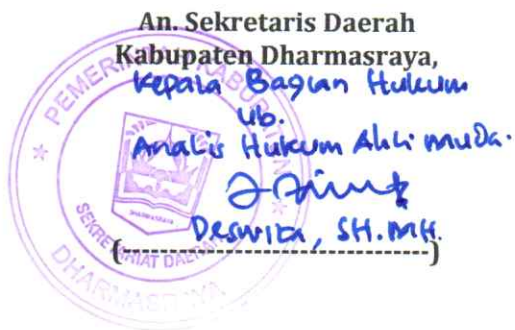 An. Sekretaris Daerah
Kabupaten Dharmasraya,
Kepala Bagian Hukum
ub.
Analis Hukum Ahli Muda.
Deswita, SH.MH.
(------------------------------)
PEMERINTAH KABUPATEN
DHARMASRAYA
SEKRETARIAT DAERAH
DHARMASRAYA